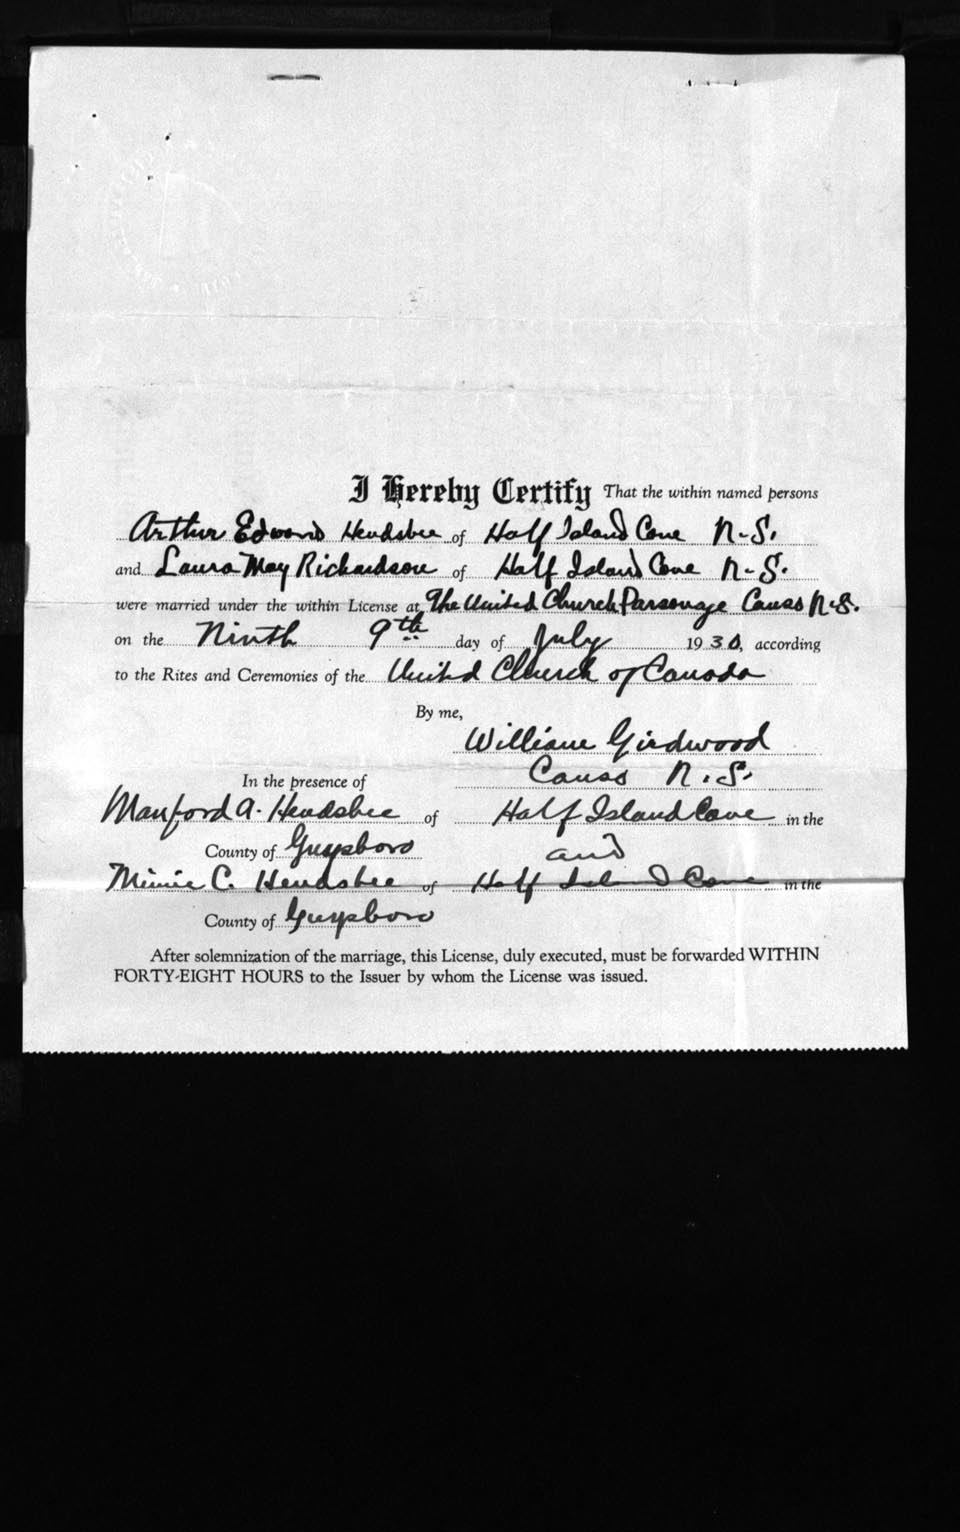 I Hereby Certify That the within named persons
Arthur Edward Hendsbee of Half Island Cove N.S.
and Laura May Richardson of Half Island Cove N.S.
were married under the within License at The United Church Parsonage Canso N.S.
on the Ninth 9th day of July 1930, according
to the Rites and Ceremonies of the United Church of Canada
By me,
William Girdwood
Canso N.S.
In the presence of
Manford A. Hendsbee of Half Island Cove in the
County of Guysboro and
Minnie C. Hendsbee of Half Island Cove in the
County of Guysboro
After solemnization of the marriage, this License, duly executed, must be forwarded WITHIN
FORTY-EIGHT HOURS to the Issuer by whom the License was issued.